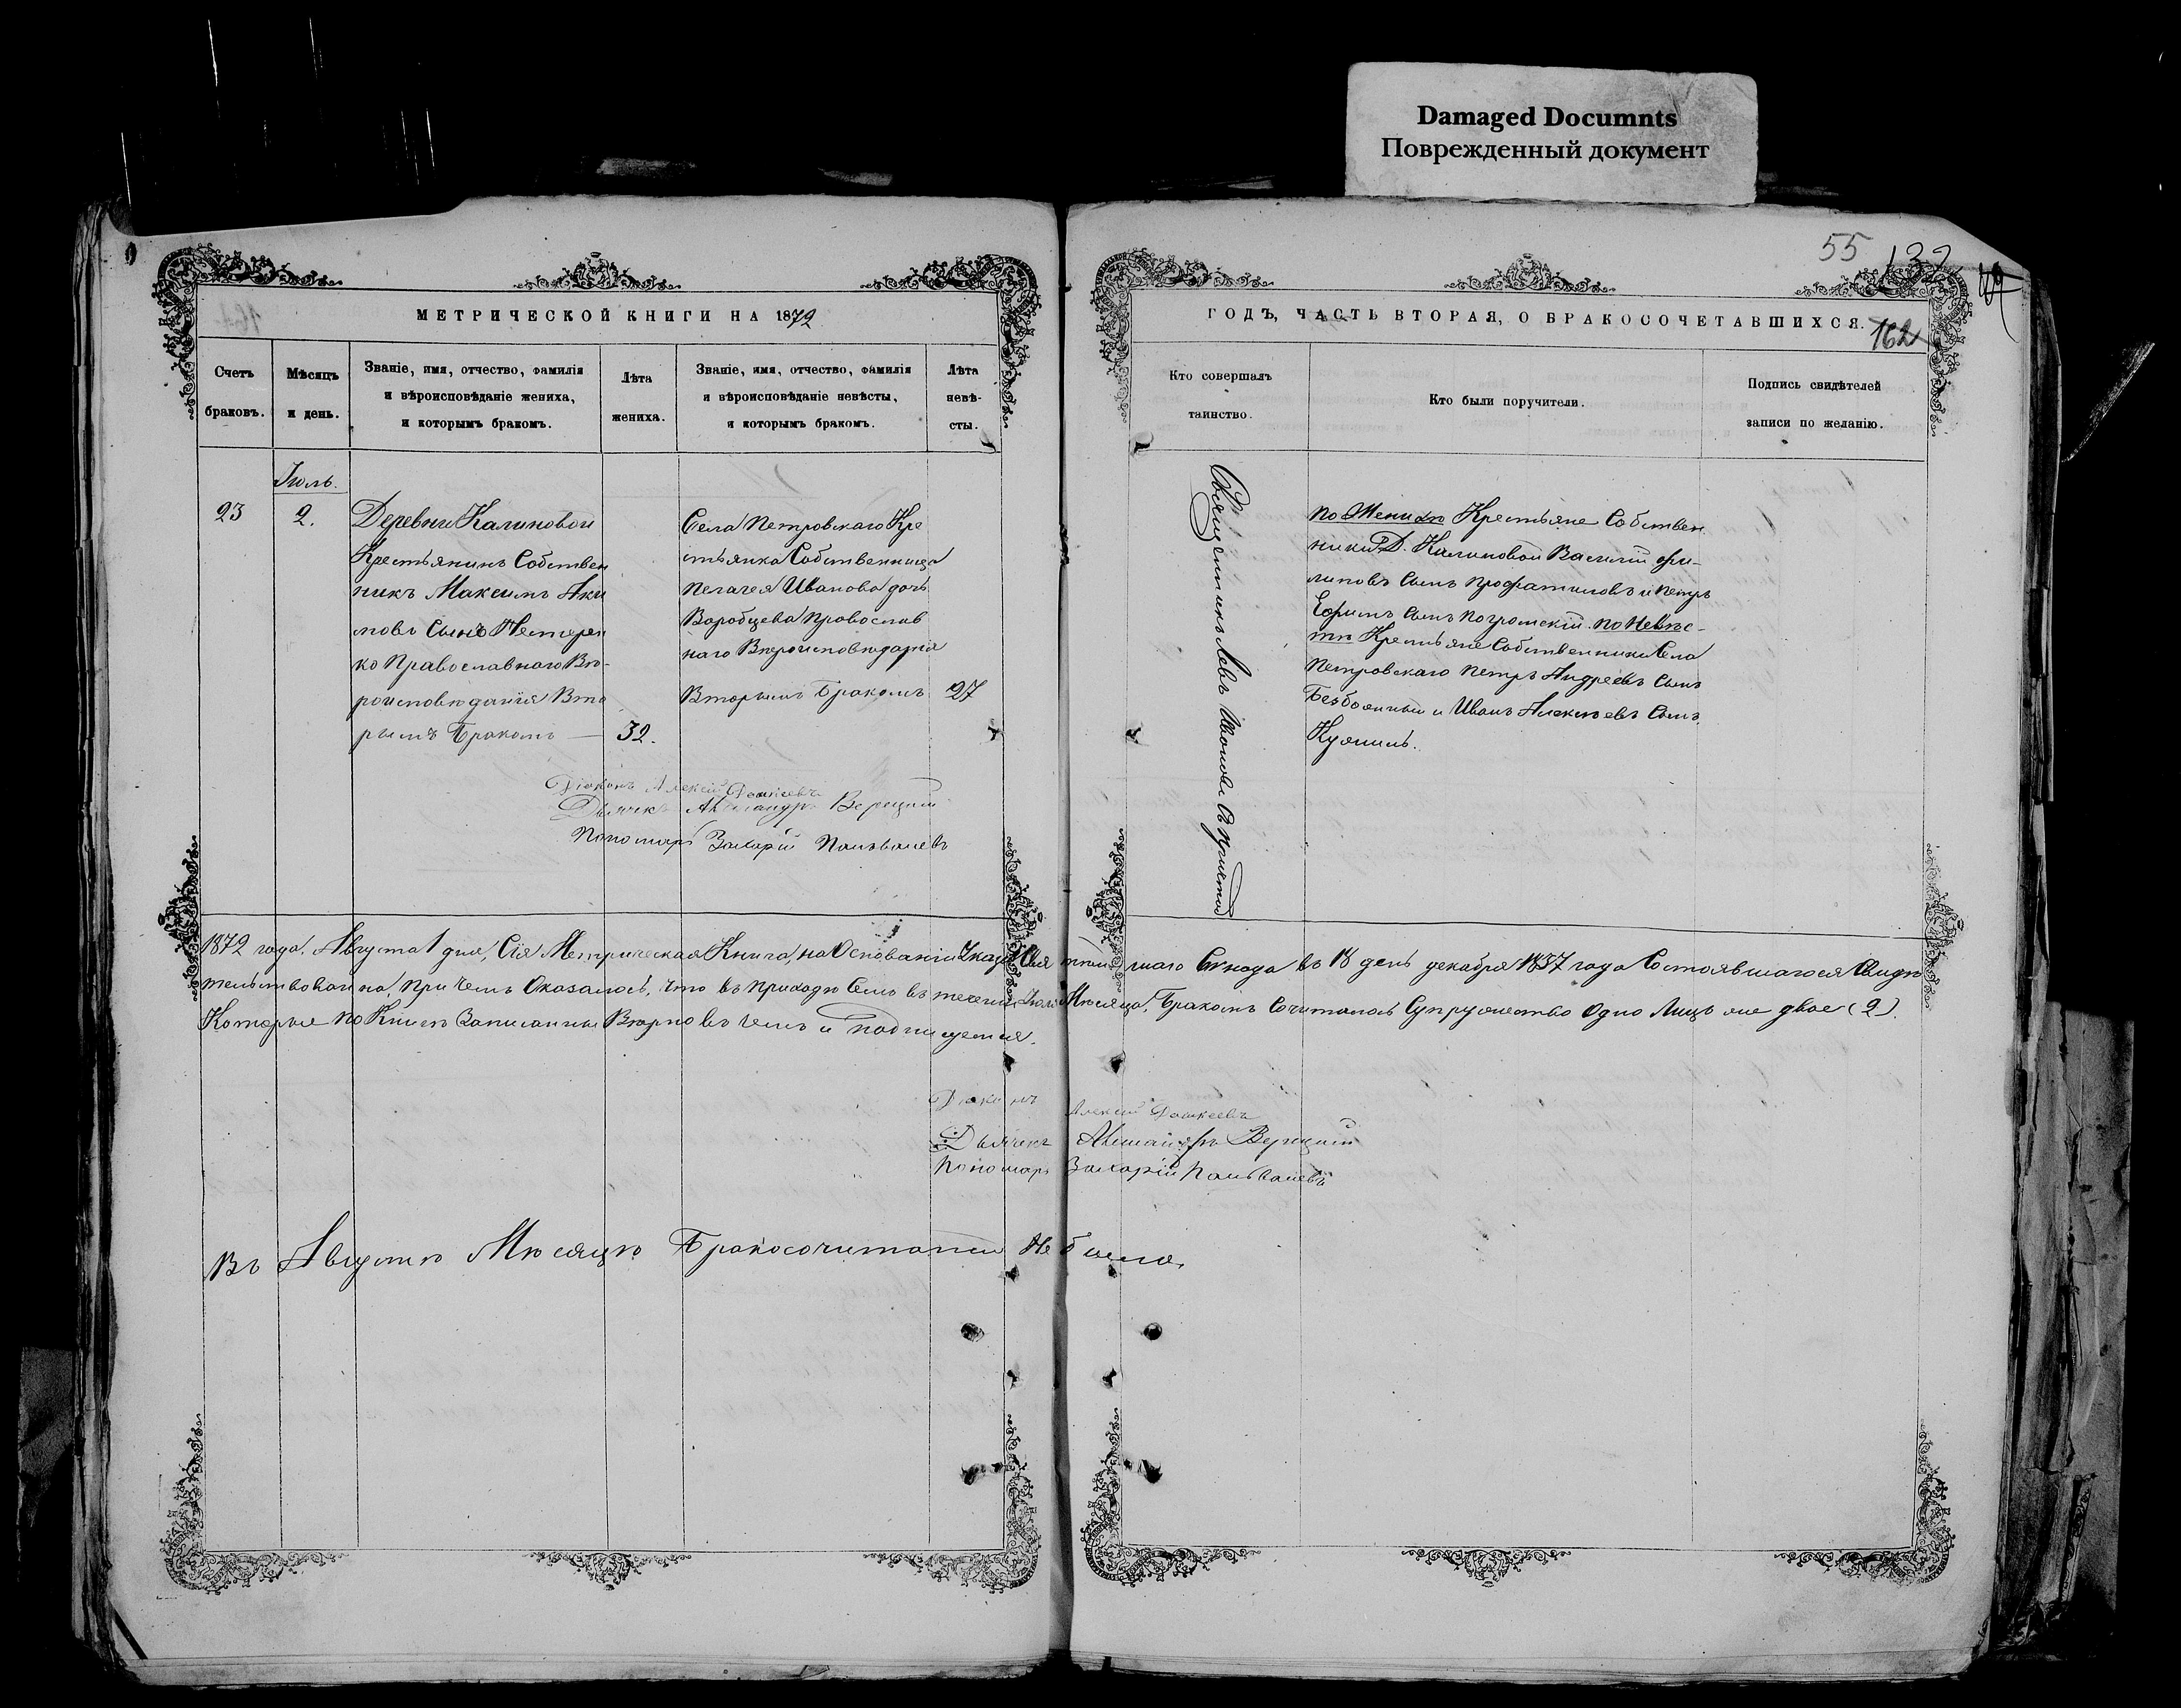 Damaged Documnts
Поврежденный документ
55 132
162
МЕТРИЧЕСКОЙ КНИГИ НА 1872
ГОДЪ, ЧАСТЬ ВТОРАЯ, О БРАКОСОЧЕТАВШИХСЯ.
Счетъ
браковъ.
Мѣсяцъ
и день.
Званіе, имя, отчество, фамилія
и вѣроисповѣданіе жениха,
и которымъ бракомъ.
Лѣта
жениха.
Званіе, имя, отчество, фамилія
и вѣроисповѣданіе невѣсты,
и которымъ бракомъ.
Лѣта
невѣ-
сты.
Кто совершалъ
таинство.
Кто были поручители.
Подпись свидѣтелей
записи по желанію.
Іюль.
23
2.
Деревни Калиновой
Крестьянинъ Собствен
никъ Максимъ Аки
мовъ Сынъ Нестерен
ко Православнаго Вѣ-
роисповѣданія Вто
рымъ Бракомъ —
32.
Села Петровскаго Кре
стьянка Собственница
Пелагея Иванова дочь
Воробцева Провослав
наго Вѣроисповѣданія
Вторымъ Бракомъ
27
Священникъ Левъ Іоановъ
по Женихѣ Крестьяне Собствен
ники Д. Калиновой Василій Фи-
липовъ Сынъ и Петръ
Ефимъ Сынъ Погромскій. по Невѣс-
тѣ Крестьяне Собственники Села
Петровскаго Петръ Андреевъ Сынъ
и Иванъ Алексѣевъ Сынъ
Діаконъ Алексій
Дьячекъ Александръ Верецкій
Пономарь Захарій
1872 года. Августа 1 дня, Сія Метрическая Книга, на Основаніи Указа Святѣйшаго Сѵнода въ 18 день декабря 1837 года Состоявшагося Свидѣ
тельствована, При Чемъ Оказалось, что въ приходѣ Семъ въ теченіи Іюля Мѣсяца, Бракомъ Сочиталось Супружество Одно Лицъ же двое (2).
Которые по Книгѣ Записанны Вѣрно въ Чемъ и подписуемся.
Діаконъ Алексій
Дьячекъ Александръ Верецкій
Пономарь Захарій
Въ Августѣ Мѣсяцѣ Бракосочитаній Не было.